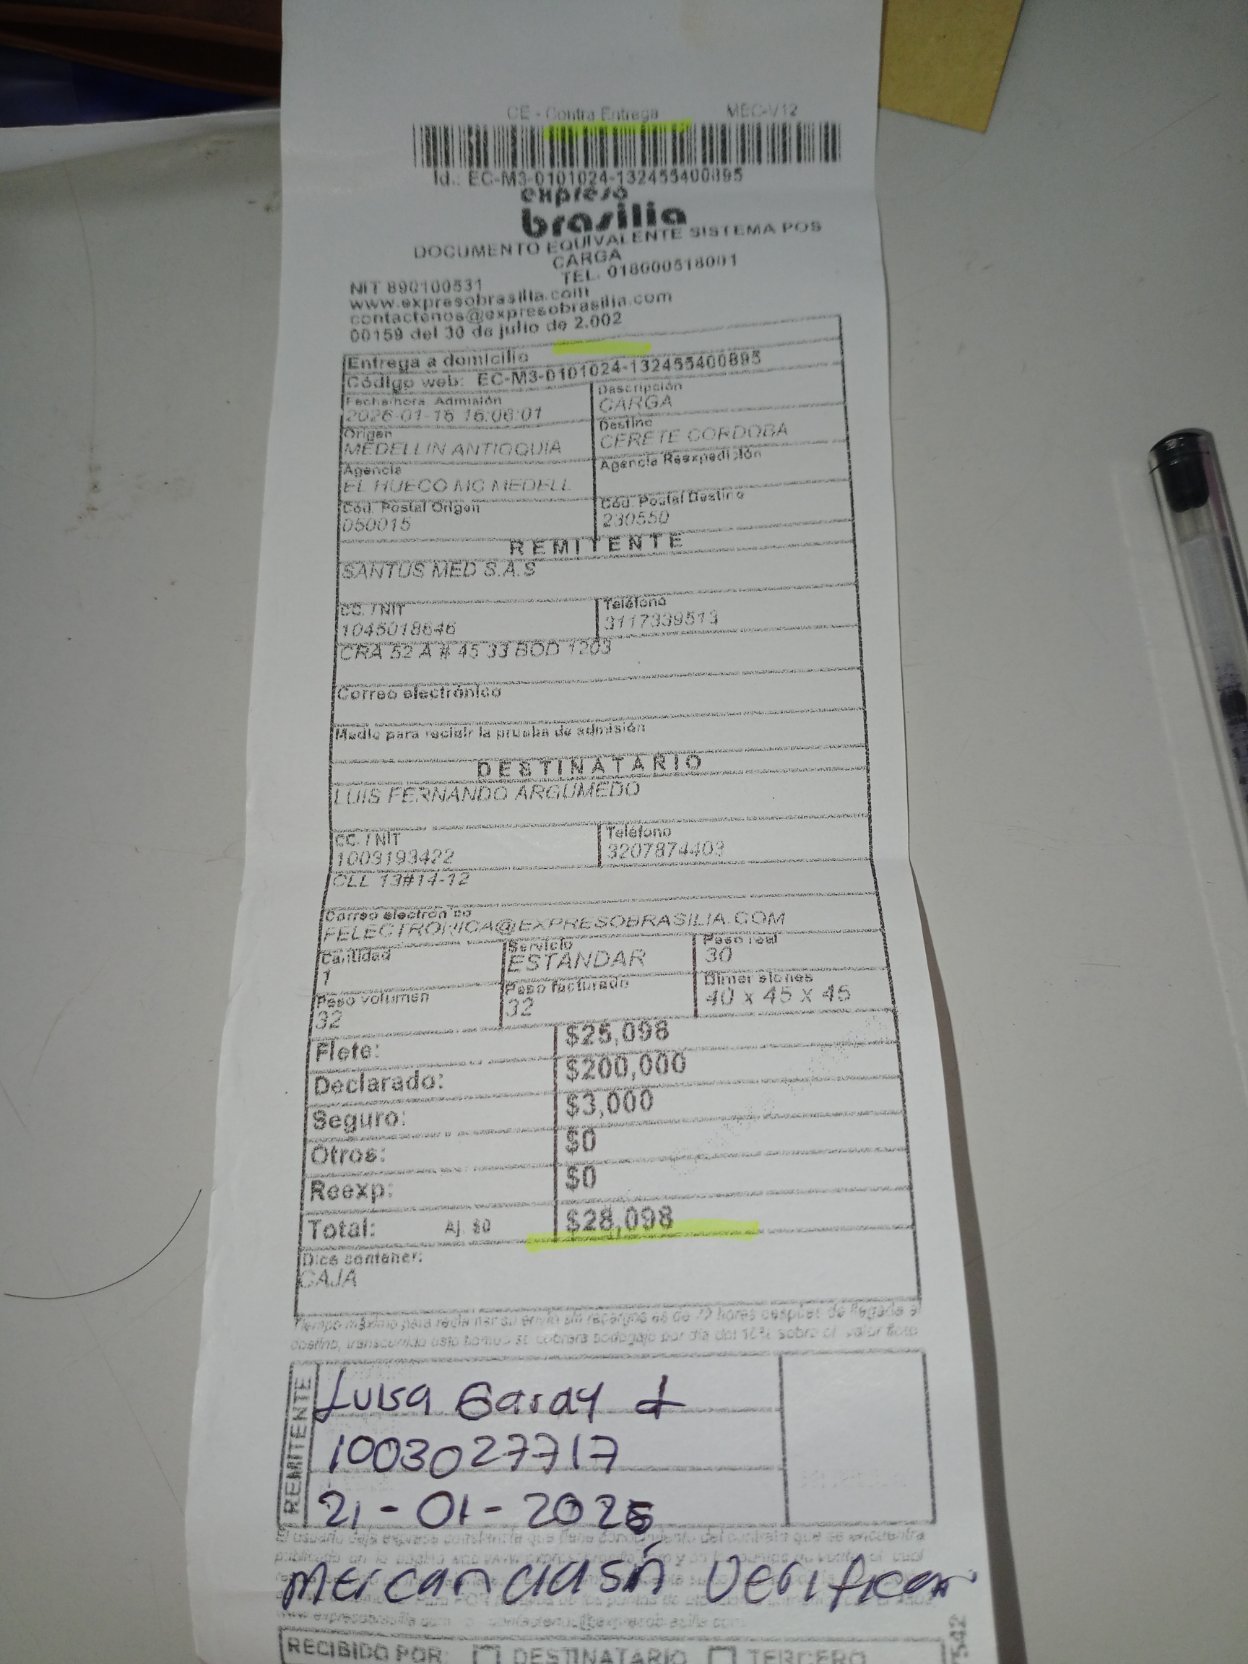 CE - Contra Entrega MEC-V12
Id.: EC-M3-0101024-132455400895
expreso
brasilia
DOCUMENTO EQUIVALENTE SISTEMA POS
CARGA
NIT 890100531 TEL. 018000518001
www.expresobrasilia.com
contactenos@expresobrasilia.com
00159 del 30 de julio de 2.002
Entrega a domicilio
Código web: EC-M3-0101024-132455400895
Fecha/hora Admisión Descripción
2026-01-15 16:06:01 CARGA
Origen Destino
MEDELLIN ANTIOQUIA CERETE CORDOBA
Agencia Agencia Reexpedición
EL HUECO MC MEDELL
Cód. Postal Origen Cód. Postal Destino
050015 230550
REMITENTE
SANTUS MED S.A.S
CC. / NIT Teléfono
1045018646 3117339513
CRA 52 A # 45 33 BOD 1203
Correo electrónico
Medio para recibir la prueba de admisión
DESTINATARIO
LUIS FERNANDO ARGUMEDO
CC. / NIT Teléfono
1003193422 3207874403
CLL 13#14-12
Correo electrónico
FELECTRONICA@EXPRESOBRASILIA.COM
Cantidad Servicio Peso real
1 ESTANDAR 30
Peso volumen Peso facturado Dimensiones
32 32 40 x 45 x 45
Flete: $25,098
Declarado: $200,000
Seguro: $3,000
Otros: $0
Reexp: $0
Total: Aj. $0 $28,098
Dice contener:
CAJA
Tiempo máximo para reclamar su envío sin recargos es de 72 horas después de llegada al
destino, transcurrido este tiempo se cobrará bodegaje por día del 10% sobre el valor flete
REMITENTE
Luisa Garay L
1003027717
21-01-2026
El usuario deja expresa constancia que tiene conocimiento del contrato que se encuentra
mercancia sin Verificar
RECIBIDO POR: DESTINATARIO TERCERO